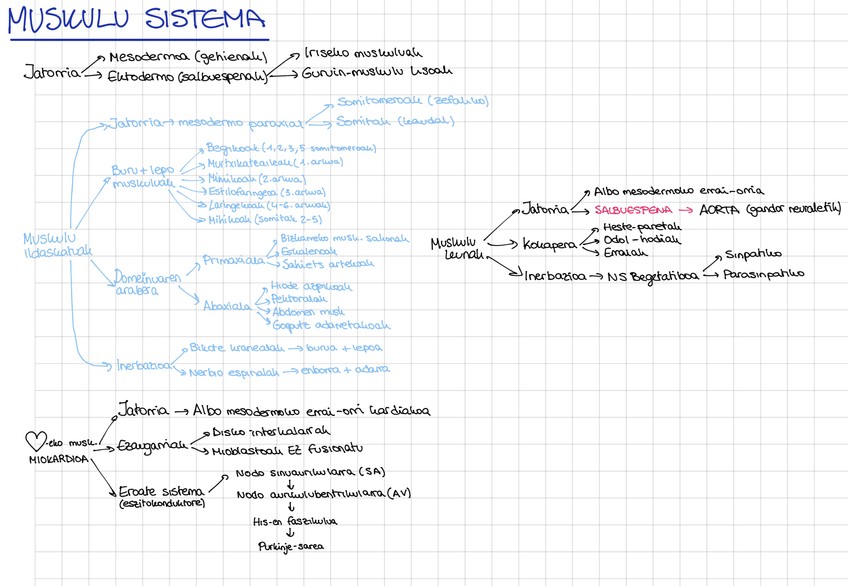 MUSKULU SISTEMA
Jatorria → Mesodermoa (gehienak)
→ Ektodermo (salbuespenak) → Iriseko muskuluak
→ Guruin-muskulu lisoak
Muskulu ildaskatuak
Jatorria → mesodermo paraxial → Somitomeroak (zefaliko)
→ Somitak (kaudal)
Buru + lepo muskuluak
Begikoak (1,2,3,5 somitomeroak)
Murtxikatzaileak (1. arkua)
Mimikoak (2. arkua)
Estilofaringeoa (3. arkua)
Laringekoak (4-6. arkuak)
Mihikoak (somitak 2-5)
Domeinuaren arabera
Primaxiala
Bizkarreko musk. sakonak
Eskalenoak
Saihets artekoak
Abaxiala
Hiode azpikoak
Pektoralak
Abdomen musk
Gorputz adarretakoak
Inerbazioa
Bikote kranealak → burua + lepoa
Nerbio espinalak → enborra + adarra
Muskulu leunak
Jatorria → Albo mesodermoko errai-orria
→ SALBUESPENA → AORTA (gandor neuraletik)
Kokapena → Heste-paretak
→ Odol-hodiak
→ Erraiak
Inerbazioa → NS Begetatiboa → Sinpatiko
→ Parasinpatiko
♡-eko musk.
MIOKARDIOA
Jatorria → Albo mesodermoko errai-orri kardiakoa
Ezaugarriak → Disko interkalarrak
→ Mioblastoak EZ fusionatu
Eroate sistema
(eszitokonduktore)
Nodo sinuaurikularra (SA)
↓
Nodo aurikulubentrikularra (AV)
↓
His-en faszikulua
↓
Purkinje-sarea